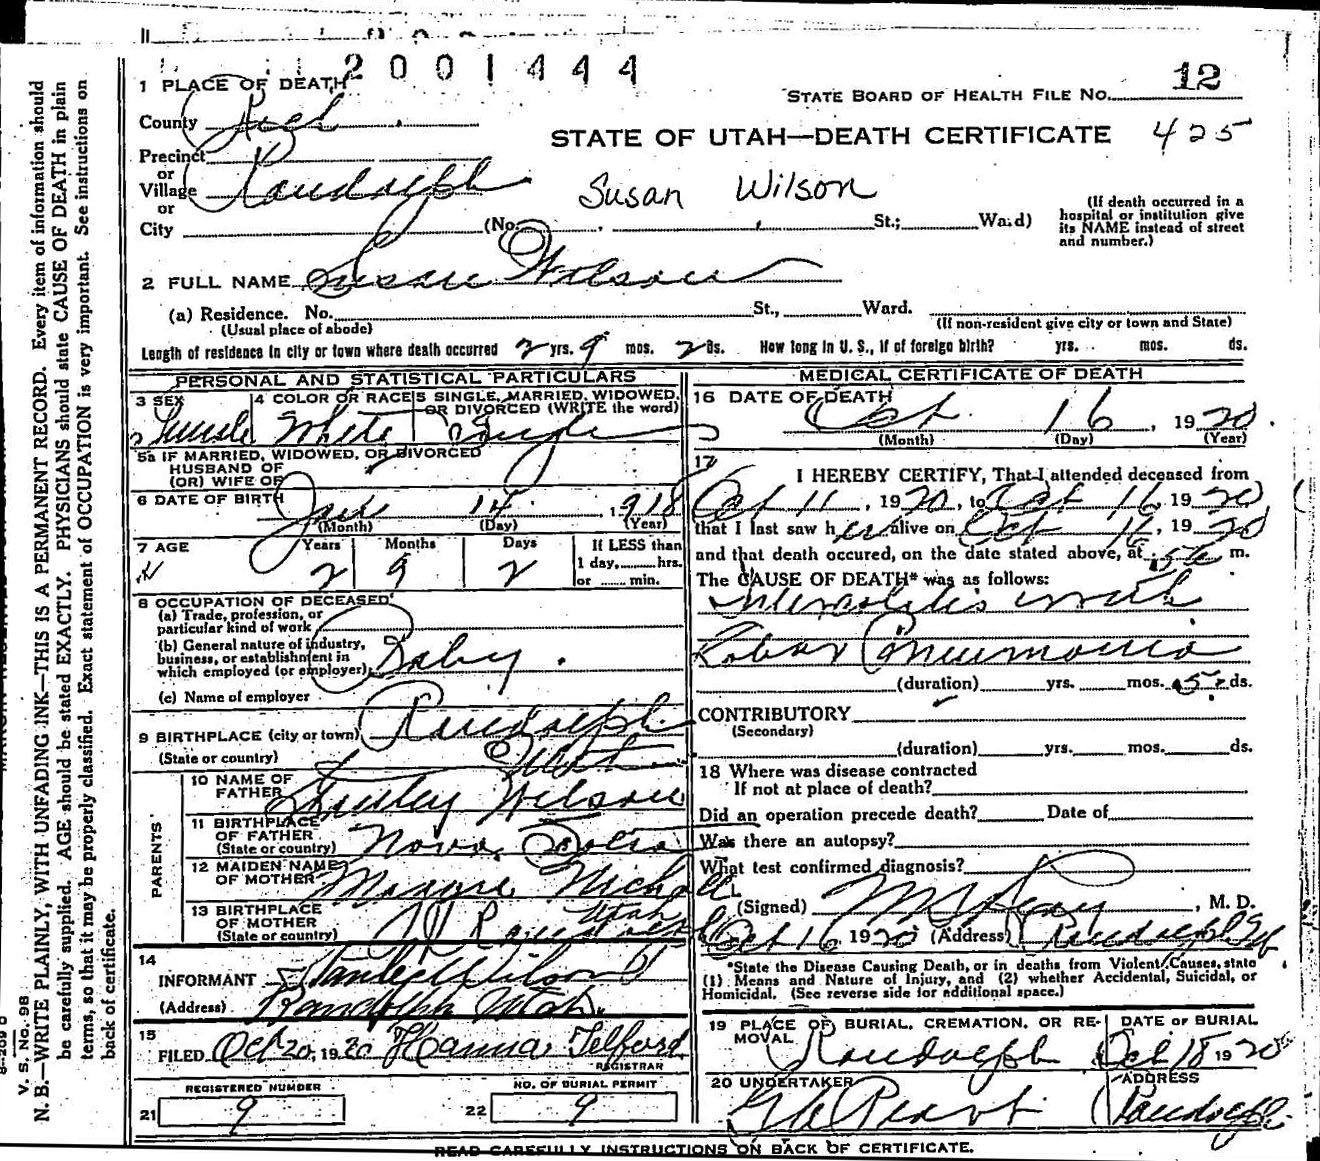 2001444
1 PLACE OF DEATH
STATE BOARD OF HEALTH FILE NO. 12
County Rich
STATE OF UTAH—DEATH CERTIFICATE 425
Precinct
or
Village Randolph
Susan Wilson
or
City (No. St.; Ward)
(If death occurred in a
hospital or institution give
its NAME instead of street
and number.)
2 FULL NAME Susan Wilson
(a) Residence. No. St., Ward.
(Usual place of abode) (If non-resident give city or town and State)
Length of residence in city or town where death occurred 2 yrs. 9 mos. 2 ds. How long in U. S., if of foreign birth? yrs. mos. ds.
PERSONAL AND STATISTICAL PARTICULARS
3 SEX 4 COLOR OR RACE 5 SINGLE, MARRIED, WIDOWED,
OR DIVORCED (WRITE the word)
Female White Single
5a IF MARRIED, WIDOWED, OR DIVORCED
HUSBAND OF
(OR) WIFE OF
6 DATE OF BIRTH Jan 14 1918
(Month) (Day) (Year)
7 AGE Years Months Days If LESS than
2 9 2 1 day, hrs.
or min.
8 OCCUPATION OF DECEASED
(a) Trade, profession, or
particular kind of work
(b) General nature of industry,
business, or establishment in
which employed (or employer) Baby.
(c) Name of employer
9 BIRTHPLACE (city or town) Randolph
(State or country) Utah
PARENTS
10 NAME OF
FATHER Stanley Wilson
11 BIRTHPLACE
OF FATHER
(State or country) Nova Scotia
12 MAIDEN NAME
OF MOTHER Nicholl
13 BIRTHPLACE
OF MOTHER
(State or country) Randolph Utah
14
INFORMANT Stanley Wilson
(Address) Randolph Utah.
15
FILED Oct 20, 1920 Hanna Telford
REGISTRAR
REGISTERED NUMBER NO. OF BURIAL PERMIT
21 9 22 9
MEDICAL CERTIFICATE OF DEATH
16 DATE OF DEATH
Oct. 16, 1920
(Month) (Day) (Year)
17
I HEREBY CERTIFY, That I attended deceased from
Oct 11, 1920, to Oct 16, 1920
that I last saw her alive on Oct 16, 1920
and that death occured, on the date stated above, at m.
The CAUSE OF DEATH* was as follows:
with
Lobar Pneumonia
(duration) yrs. mos. 5 ds.
CONTRIBUTORY
(Secondary)
(duration) yrs. mos. ds.
18 Where was disease contracted
If not at place of death?
Did an operation precede death? Date of
Was there an autopsy?
What test confirmed diagnosis?
(Signed) , M. D.
Oct 16 1920 (Address) Randolph Ut
*State the Disease Causing Death, or in deaths from Violent Causes, state
(1) Means and Nature of Injury, and (2) whether Accidental, Suicidal, or
Homicidal. (See reverse side for additional space.)
19 PLACE OF BURIAL, CREMATION, OR RE-
MOVAL DATE OF BURIAL
Randolph Oct 18 1920
20 UNDERTAKER ADDRESS
Randolph
READ CAREFULLY INSTRUCTIONS ON BACK OF CERTIFICATE.
V. S. No. 98
N. B.—WRITE PLAINLY, WITH UNFADING INK—THIS IS A PERMANENT RECORD. Every item of information should
be carefully supplied. AGE should be stated EXACTLY. PHYSICIANS should state CAUSE OF DEATH in plain
terms, so that it may be properly classified. Exact statement of OCCUPATION is very important. See instructions on
back of certificate.